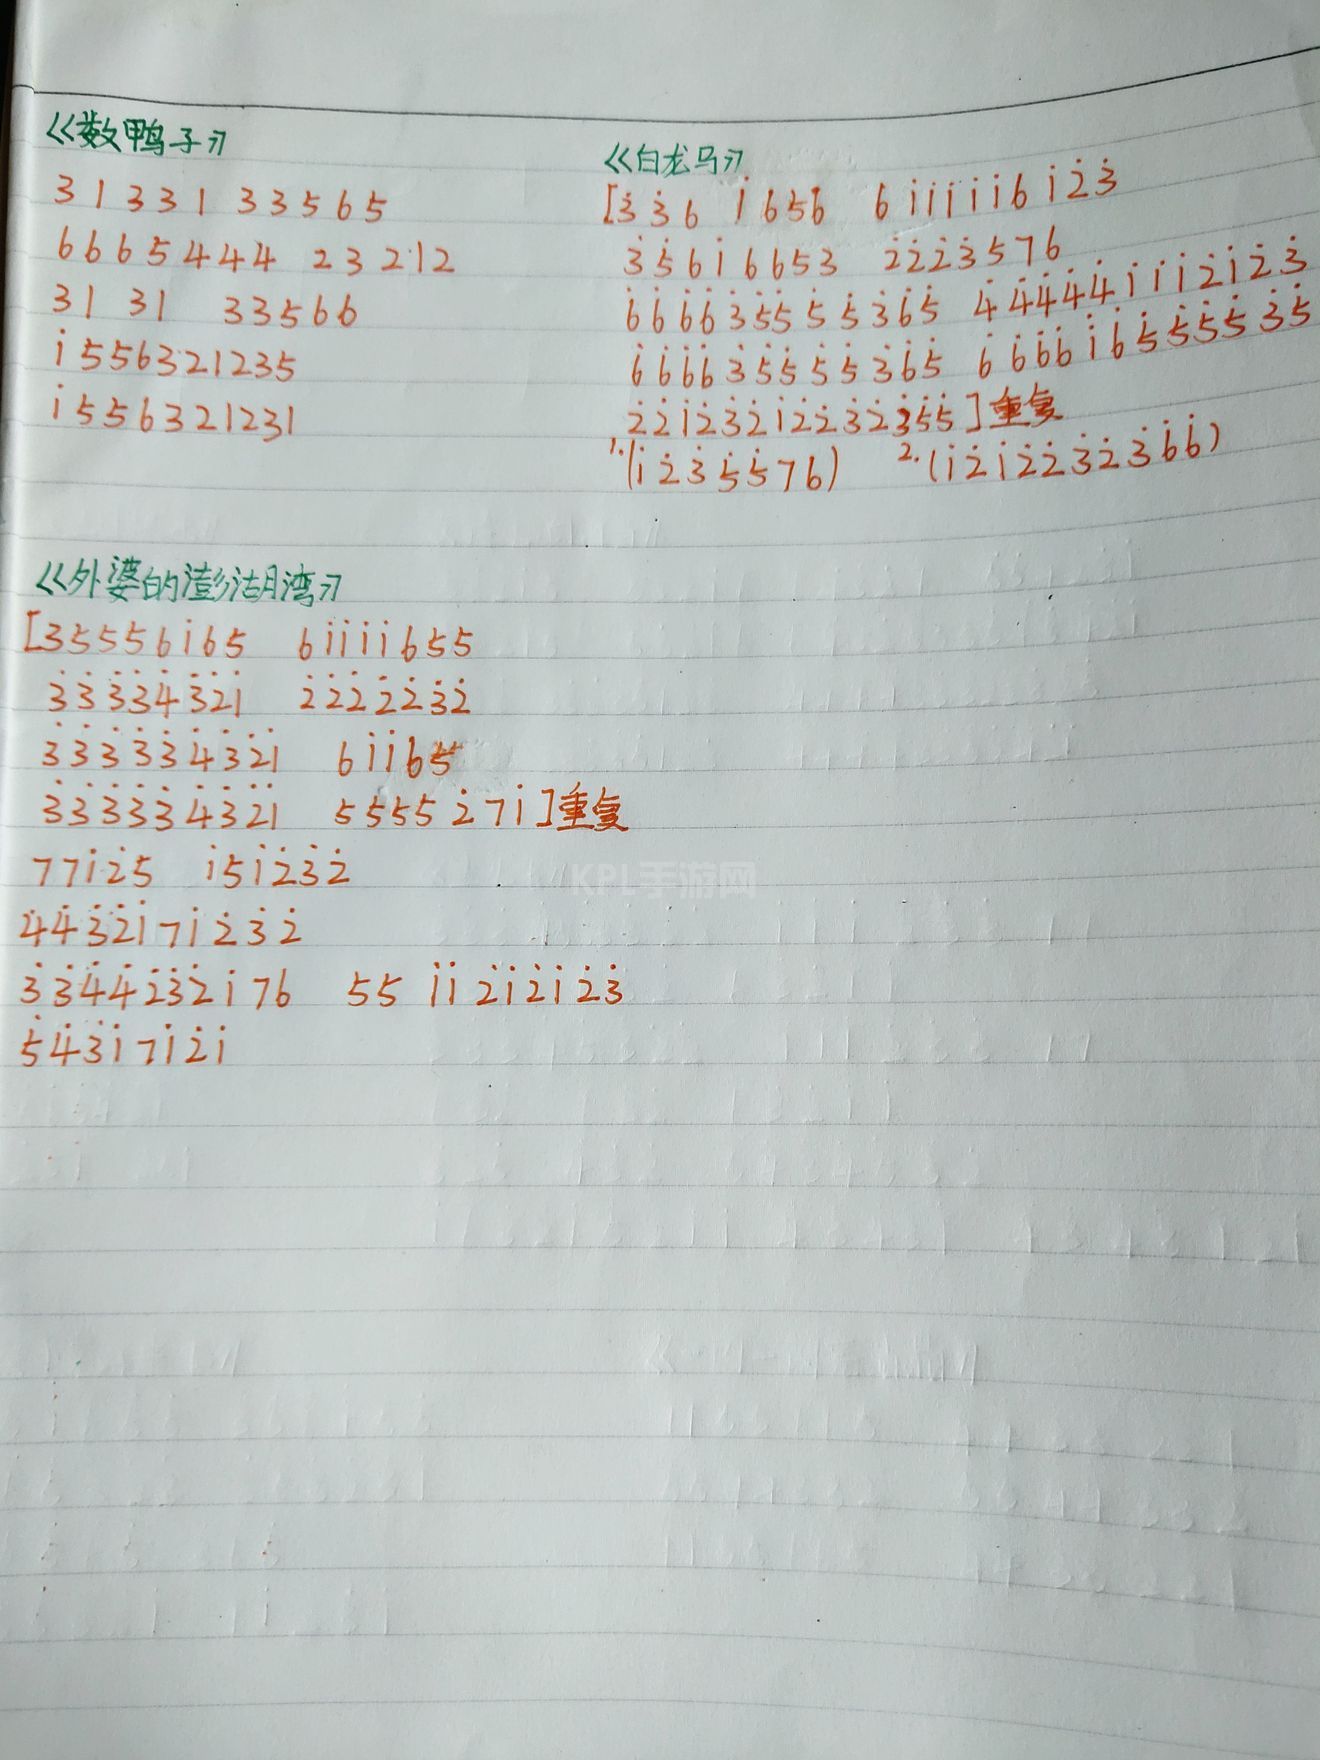 《数鸭子》
3 1 3 3 1 3 3 5 6 5
6 6 6 5 4 4 4 2 3 2 1 2
3 1 3 1 3 3 5 6 6
i̇ 5 5 6 3 2 1 2 3 5
i̇ 5 5 6 3 2 1 2 3 1
《白龙马》
[3̇ 3̇ 6 i̇ 6 5 6 6 i̇ i̇ i̇ i̇ i̇ 6 i̇ 2̇ 3̇
3̇ 5̇ 6 i̇ 6 6 5 3 2̇ 2̇ 2̇ 3̇ 5 7 6
6̇ 6̇ 6̇ 6̇ 3̇ 5̇ 5̇ 5̇ 5̇ 3̇ 6̇ 5̇ 4̇ 4̇ 4̇ 4̇ 4̇ i̇ i̇ i̇ 2̇ i̇ 2̇ 3̇
6̇ 6̇ 6̇ 6̇ 3̇ 5̇ 5̇ 5̇ 5̇ 3̇ 6̇ 5̇ 6̇ 6̇ 6̇ 6̇ i̇ 6̇ 5̇ 5̇ 5̇ 5̇ 3̇ 5̇
2̇ 2̇ i̇ 2̇ 3̇ 2̇ i̇ 2̇ 2̇ 3̇ 2̇ 3̇ 5̇ 5̇ ]重复
1.(i̇ 2̇ 3̇ 5̇ 5̇ 7 6) 2.(i̇ 2̇ i̇ 2̇ 2̇ 3̇ 2̇ 3̇ 6̇ 6̇)
《外婆的澎湖湾》
[3 5 5 5 6 i̇ 6 5 6 i̇ i̇ i̇ i̇ 6 5 5
3̇ 3̇ 3̇ 3̇ 4̇ 3̇ 2̇ i̇ 2̇ 2̇ 2̇ 2̇ 2̇ 3̇ 2̇
3̇ 3̇ 3̇ 3̇ 3̇ 4̇ 3̇ 2̇ i̇ 6 i̇ i̇ 6 5
3̇ 3̇ 3̇ 3̇ 3̇ 4̇ 3̇ 2̇ i̇ 5 5 5 5 2̇ 7 i̇ ]重复
7 7 i̇ 2̇ 5 i̇ 5 i̇ 2̇ 3̇ 2̇
4̇ 4̇ 3̇ 2̇ i̇ 7 i̇ 2̇ 3̇ 2̇
3̇ 3̇ 4̇ 4̇ 2̇ 3̇ 2̇ i̇ 7 6 5 5 i̇ i̇ 2̇ i̇ 2̇ i̇ 2̇ 3̇
5̇ 4̇ 3̇ i̇ 7 i̇ 2̇ i̇
KPL手游网